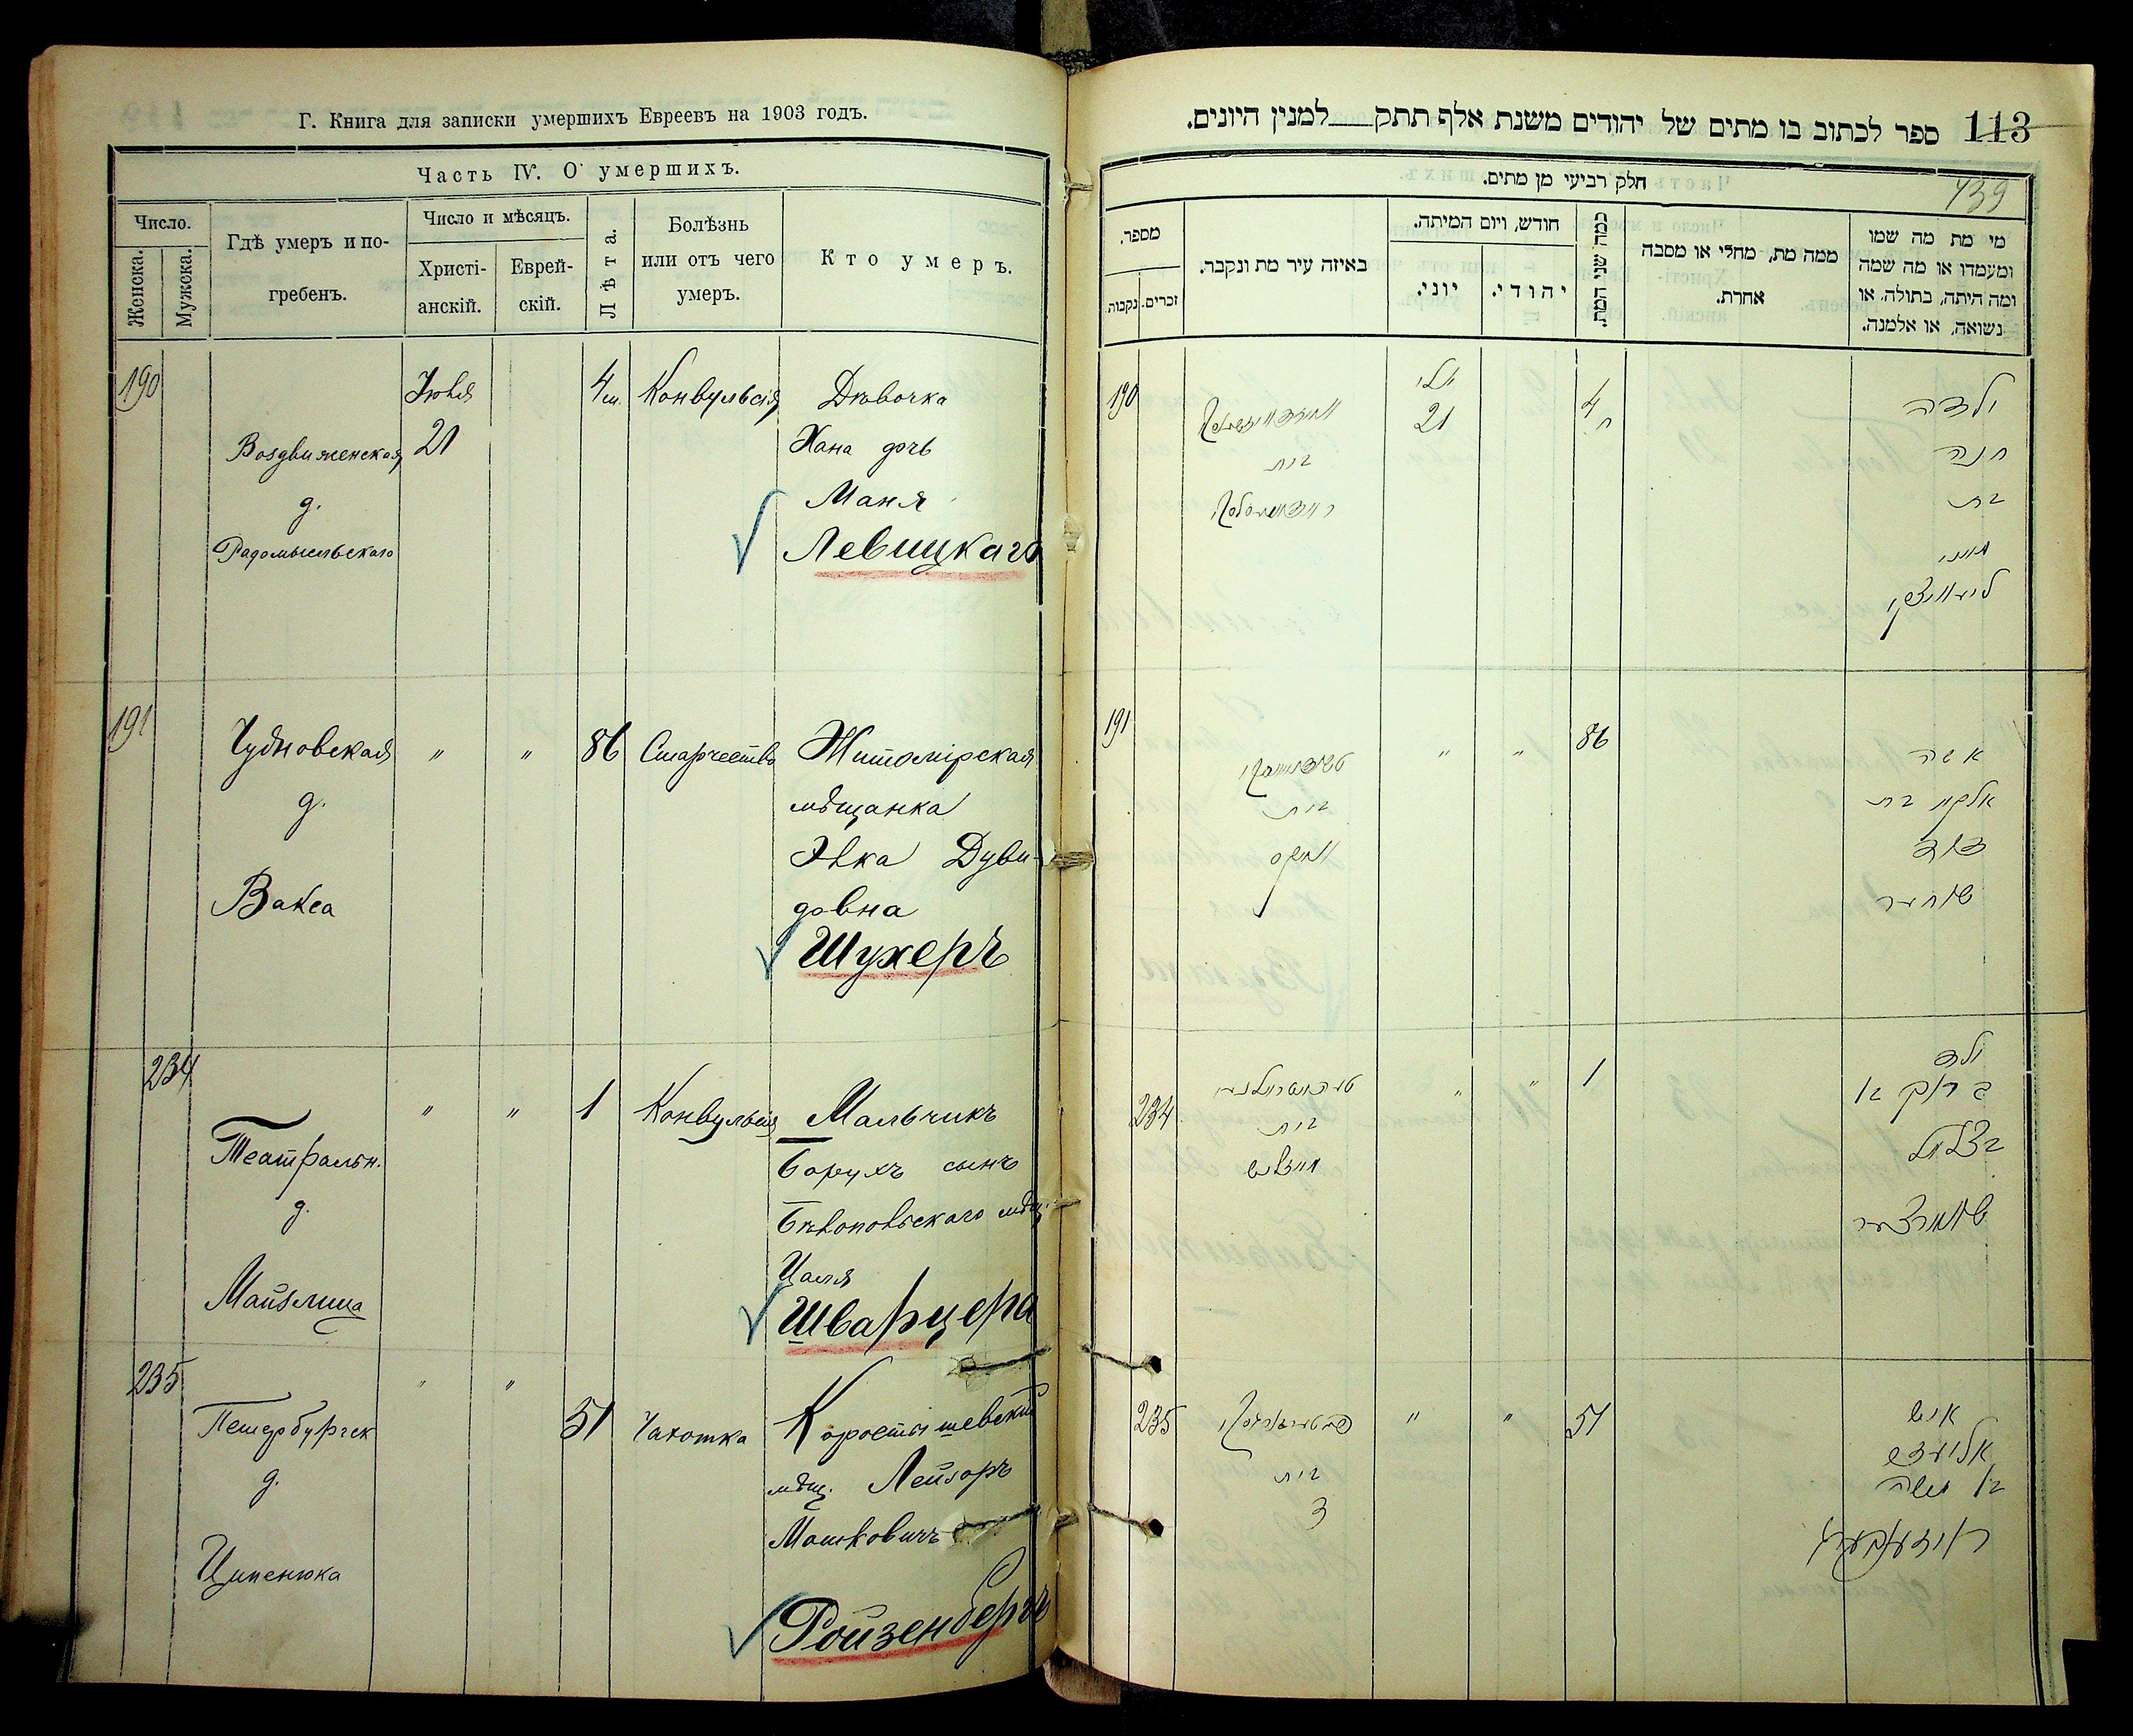 Г. Книга для записки умершихъ Евреевъ на 1903 годъ.
Часть IV. О умершихъ.
Число.
Женска.
Мужеска.
Гдѣ умеръ и по-
гребенъ.
Число и мѣсяцъ.
Христі-
анскій.
Еврей-
скій.
Лѣта.
Болѣзнь
или отъ чего
умеръ.
Кто умеръ.
190
Воздвиженская
д.
Радомысльскаго
Іюля
21
4 м.
Конвульсія
Дѣвочка
Хана дочь
Маня
Левицкаго
191
Чудновская
д.
Вакса
" "
86
Старчество
Житомірская
мѣщанка
Элка Дуви-
довна
Шухеръ
234
Театральн.
д.
Майзлица
" "
1
Конвульсія
Мальчикъ
Борухъ сынъ
мѣщ.
Цаля
Шварцера
235
Петербургск
д.
Ципенюка
" "
51
Чахотка
Коростышевскій
мѣщ. Лейзоръ
Мошковичъ
Ройзенбергъ
113
ספר לכתוב בו מתים של יהודים משנת אלף תתק למנין היונים.
139
חלק רביעי מן מתים.
מספר.
זכרים.
נקבות.
באיזה עיר מת ונקבר.
חודש, ויום המיתה.
יוני.
יהודי.
כמה שני המת.
ממה מת, מחלי או מסבה
אחרת.
מי מת מה שמו
ומעמדו או מה שמה
ומה היתה, בתולה, או
נשואה, או אלמנה.
190
בית
יולי
21
4
ח
ילדה
חנה
בת
מוני
לעוויצקי
191
בית
וואקס
" "
86
אשה
עלקא בת
דוד
שוחער
234
בית
" "
1
ילד
ברוך בן
בצלאל
שווארצער
235
בית
" "
51
איש
אליעזר
בן משה
רויזענבערג